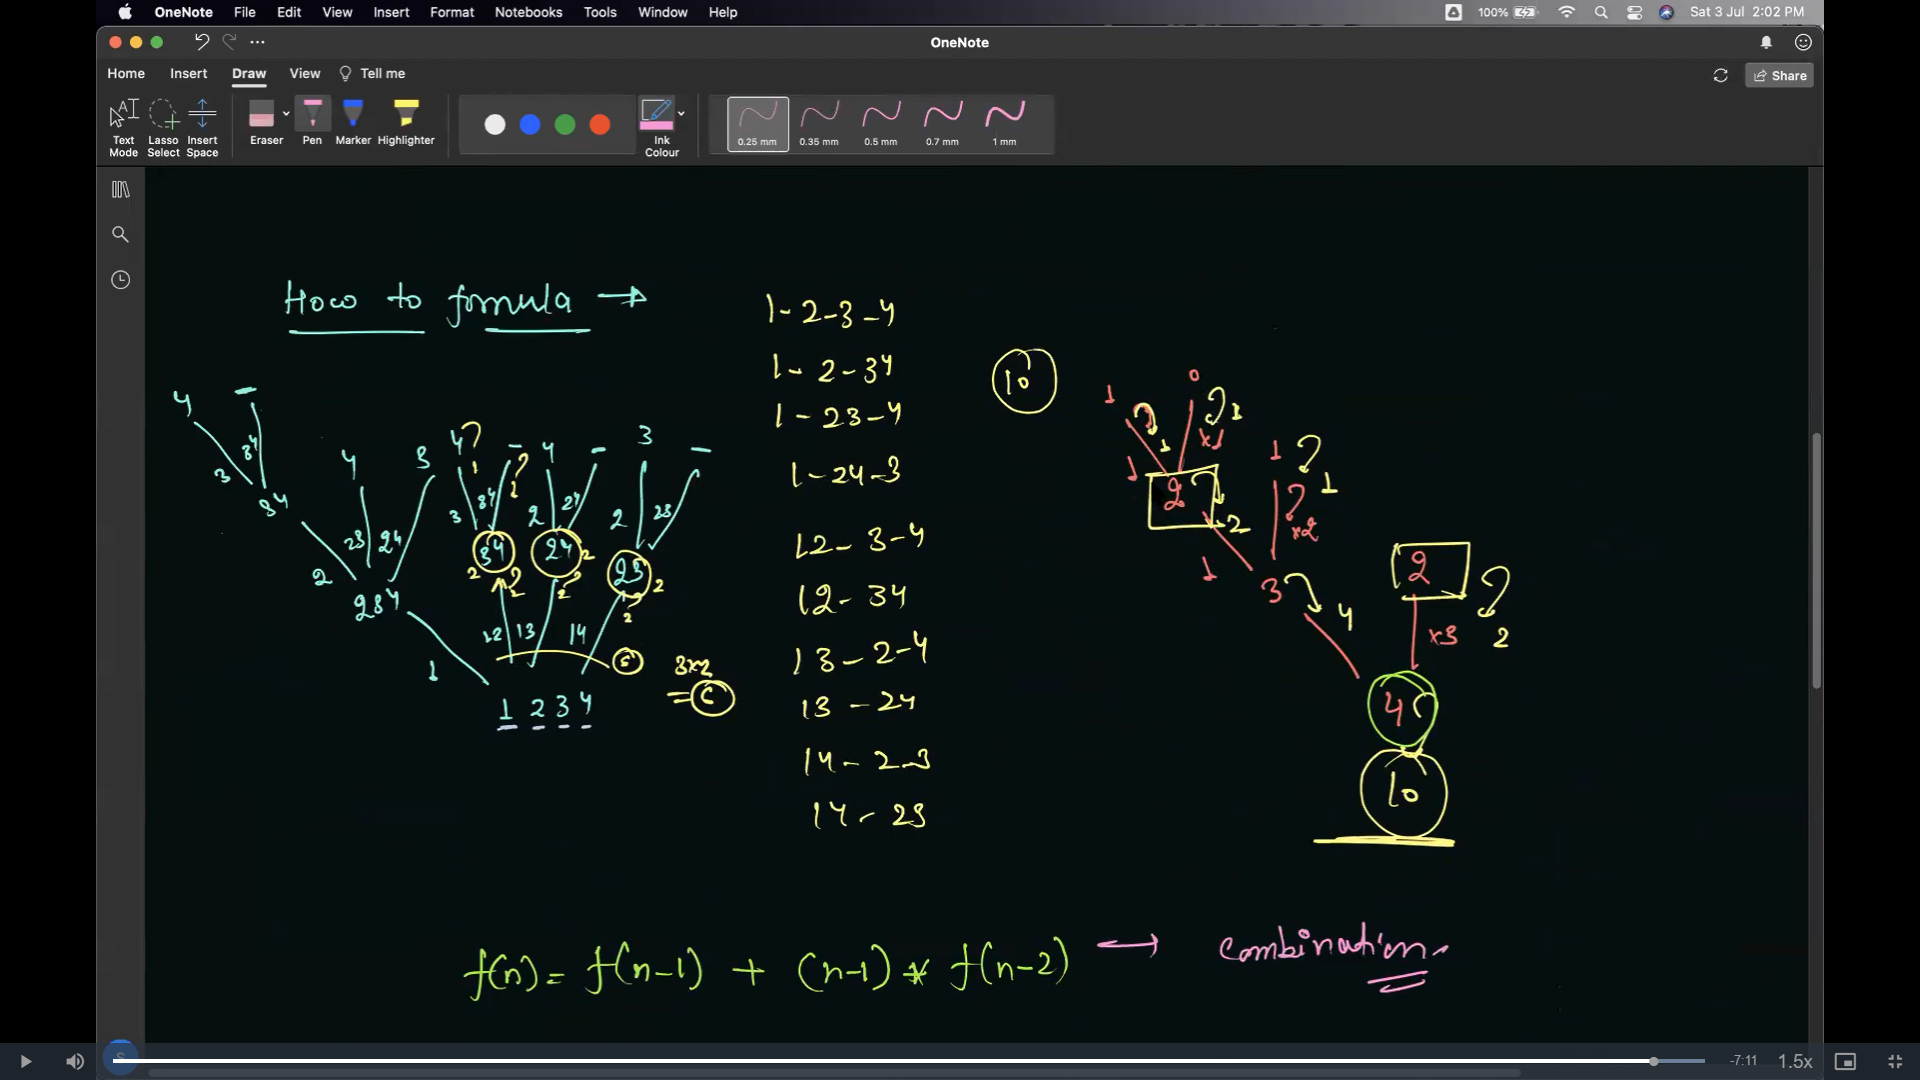 OneNote File Edit View Insert Format Notebooks Tools Window Help 100% Sat 3 Jul 2:02 PM
OneNote
Home Insert Draw View Tell me Share
Text Mode Lasso Select Insert Space Eraser Pen Marker Highlighter Ink Colour 0.25 mm 0.35 mm 0.5 mm 0.7 mm 1 mm
How to formula →
1-2-3-4
1-2-34
1-23-4
1-24-3
12-3-4
12-34
13-2-4
13-24
14-2-3
14-23
10
4 -
3 34
34
4 3
23 24
2
234
1
4 - 4 - 3 -
3 34 2 24 2 23
34 24 23
2 2 2 2 2 2
12 13 14
1 2 3 4
3x2
= 6
1 0
1 1 x1 1
1
2 2
1 1
x2
1
3 4
2
x3 2
4
10
f(n) = f(n-1) + (n-1) * f(n-2) → combination
-7:11 1.5x